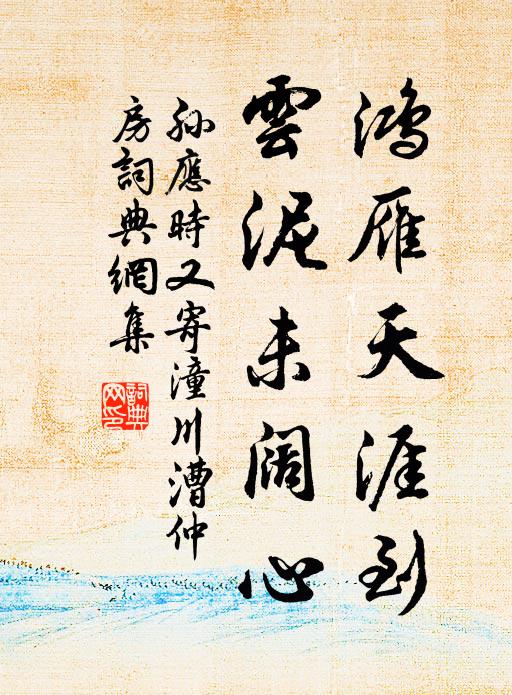 鸿雁天涯到
雲泥未阔心
孙應時又寄潼川漕仲
房詞典網集
詞典網印